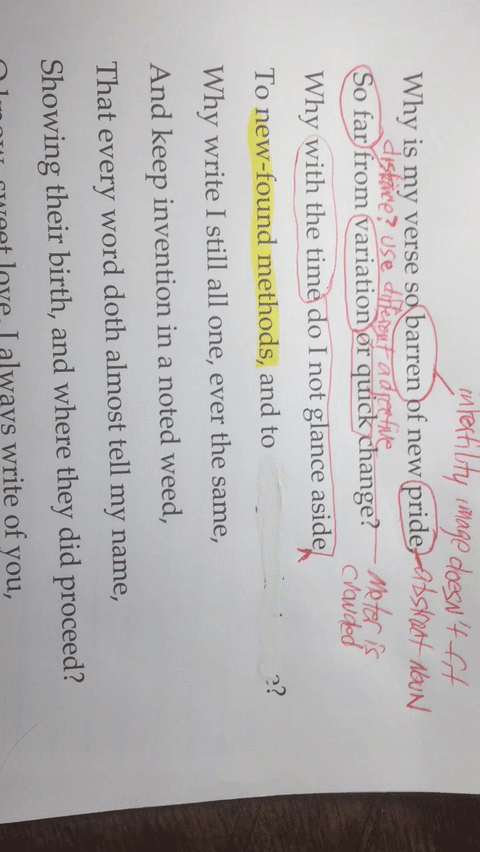 infertility image doesn't fit
abstract noun
Why is my verse so barren of new pride,
distance? use different adjective
So far from variation or quick change?
Meter is
crowded
Why with the time do I not glance aside
To new-found methods, and to
Why write I still all one, ever the same,
And keep invention in a noted weed,
That every word doth almost tell my name,
Showing their birth, and where they did proceed?
sweet love, I always write of you,